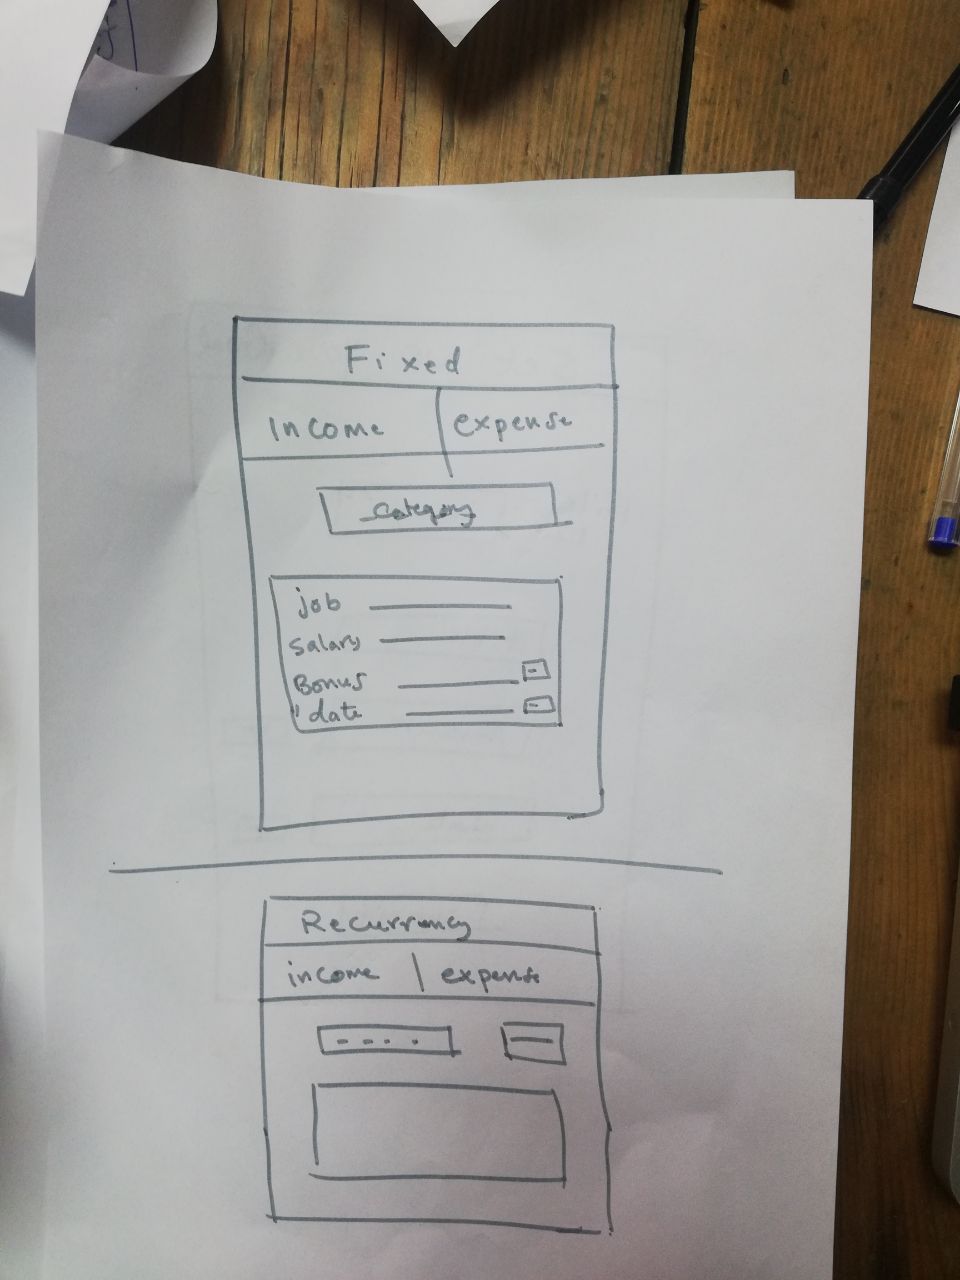 Fixed
income expense
Category
job
Salary
Bonus
" date
Recurrency
income | expense